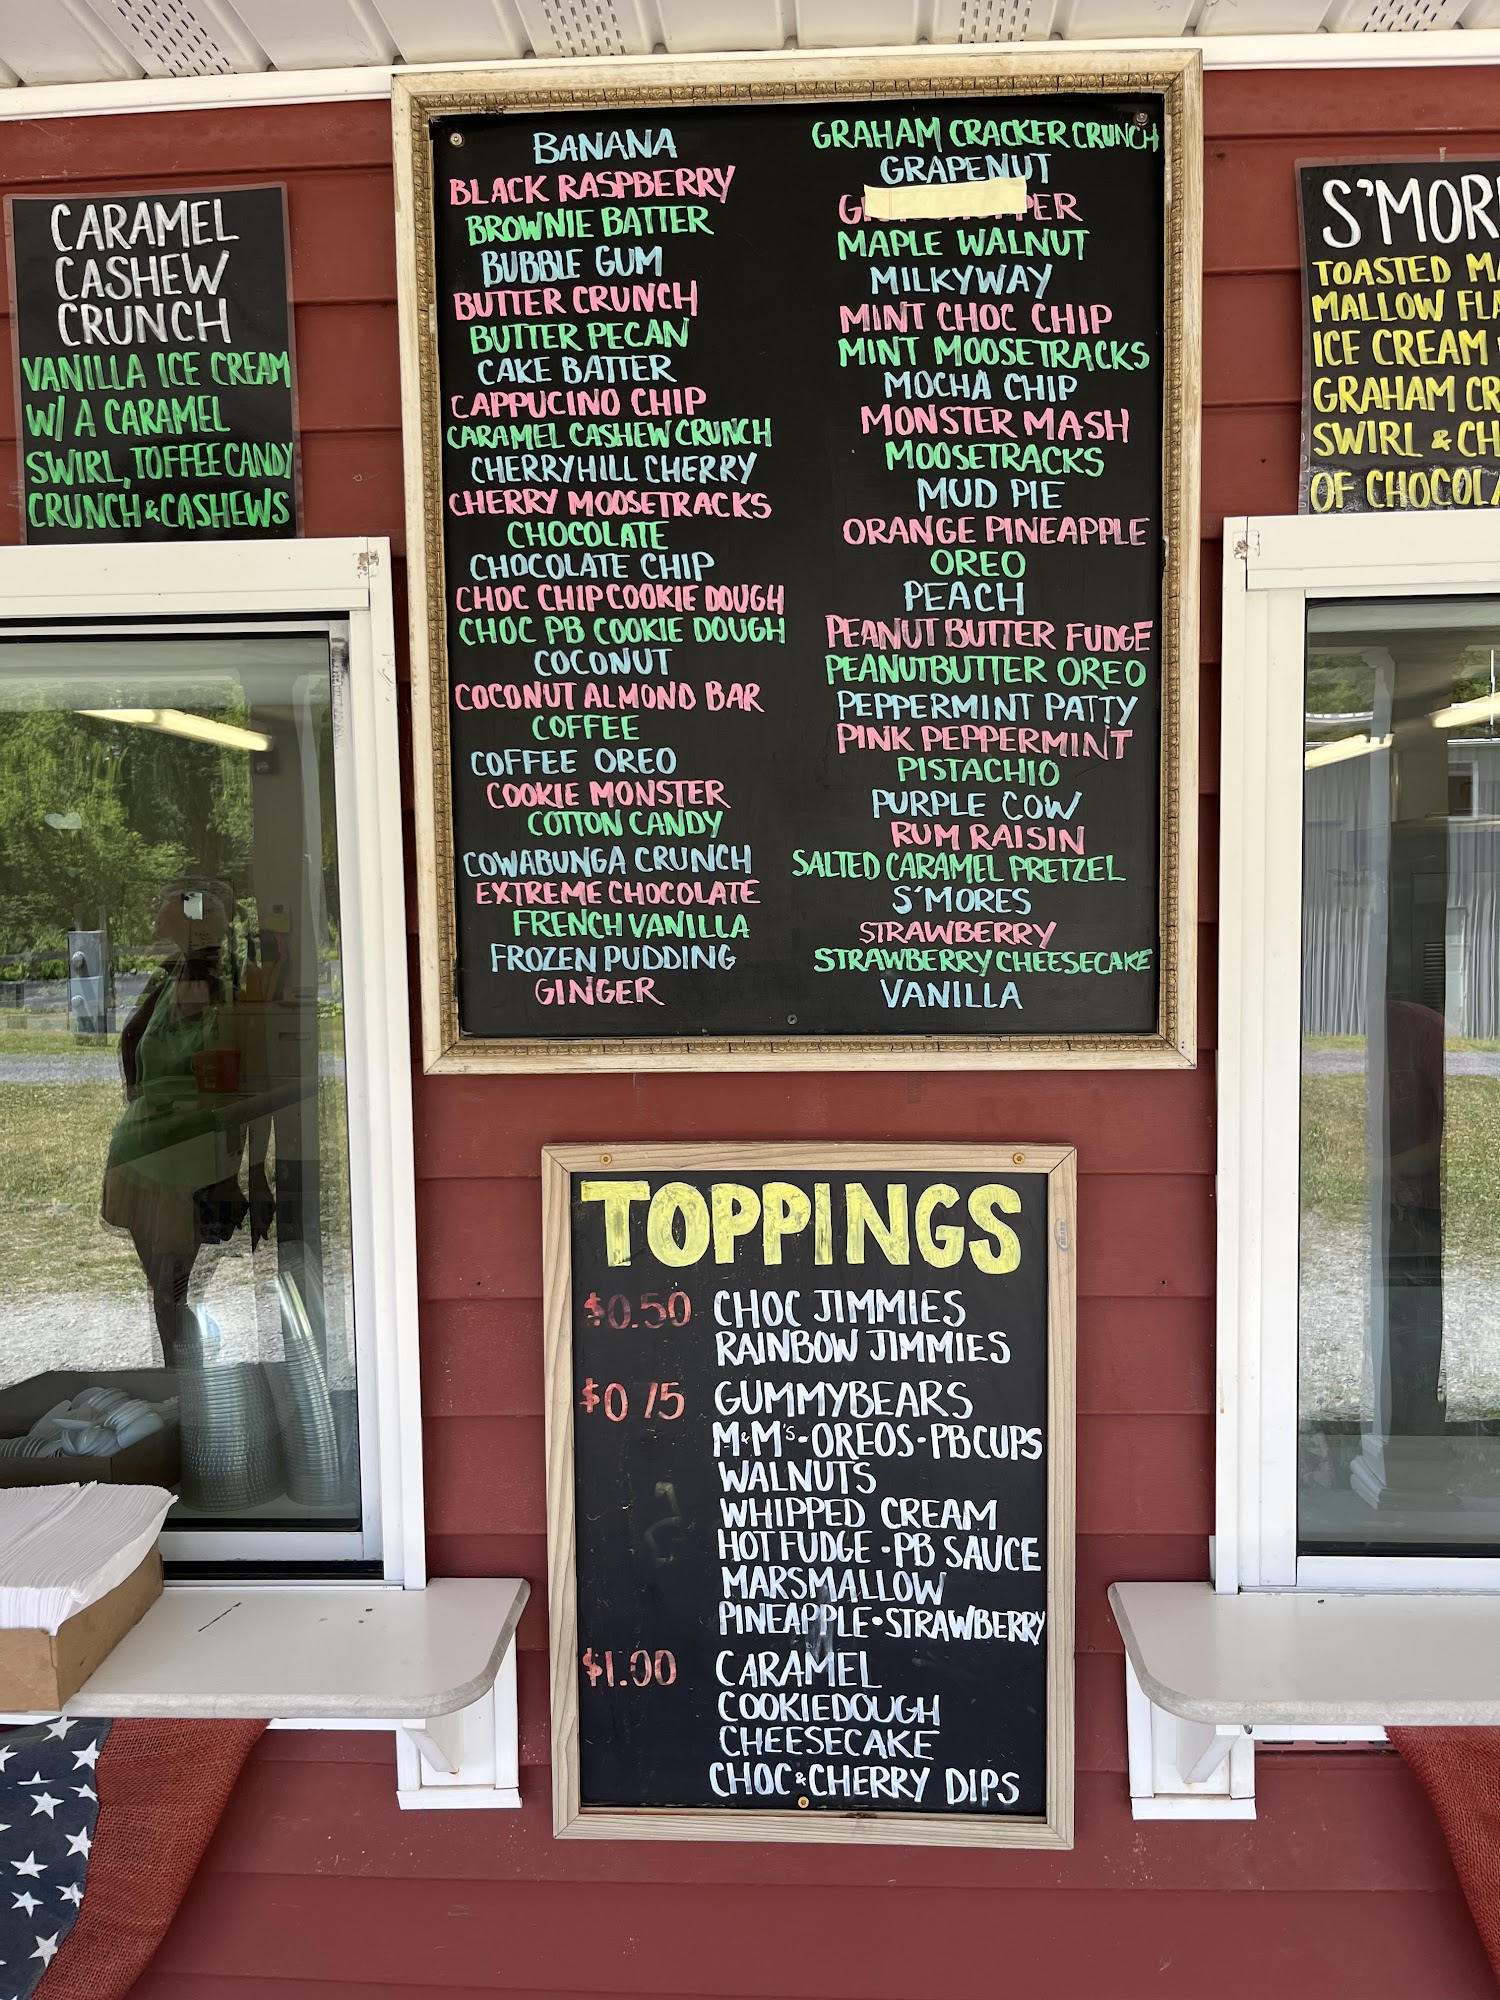 CARAMEL
CASHEW
CRUNCH
VANILLA ICE CREAM
W/ A CARAMEL
SWIRL, TOFFEE CANDY
CRUNCH & CASHEWS
BANANA
BLACK RASPBERRY
BROWNIE BATTER
BUBBLE GUM
BUTTER CRUNCH
BUTTER PECAN
CAKE BATTER
CAPPUCINO CHIP
CARAMEL CASHEW CRUNCH
CHERRYHILL CHERRY
CHERRY MOOSETRACKS
CHOCOLATE
CHOCOLATE CHIP
CHOC CHIP COOKIE DOUGH
CHOC PB COOKIE DOUGH
COCONUT
COCONUT ALMOND BAR
COFFEE
COFFEE OREO
COOKIE MONSTER
COTTON CANDY
COWABUNGA CRUNCH
EXTREME CHOCOLATE
FRENCH VANILLA
FROZEN PUDDING
GINGER
GRAHAM CRACKER CRUNCH
GRAPENUT
MAPLE WALNUT
MILKYWAY
MINT CHOC CHIP
MINT MOOSETRACKS
MOCHA CHIP
MONSTER MASH
MOOSETRACKS
MUD PIE
ORANGE PINEAPPLE
OREO
PEACH
PEANUT BUTTER FUDGE
PEANUTBUTTER OREO
PEPPERMINT PATTY
PINK PEPPERMINT
PISTACHIO
PURPLE COW
RUM RAISIN
SALTED CARAMEL PRETZEL
S'MORES
STRAWBERRY
STRAWBERRY CHEESECAKE
VANILLA
S'MOR
TOASTED MA
MALLOW FLA
ICE CREAM
GRAHAM CR
SWIRL & CH
OF CHOCOLA
TOPPINGS
$0.50 CHOC JIMMIES
RAINBOW JIMMIES
$0.75 GUMMYBEARS
M&M's - OREOS - PB CUPS
WALNUTS
WHIPPED CREAM
HOT FUDGE - PB SAUCE
MARSMALLOW
PINEAPPLE • STRAWBERRY
$1.00 CARAMEL
COOKIEDOUGH
CHEESECAKE
CHOC & CHERRY DIPS